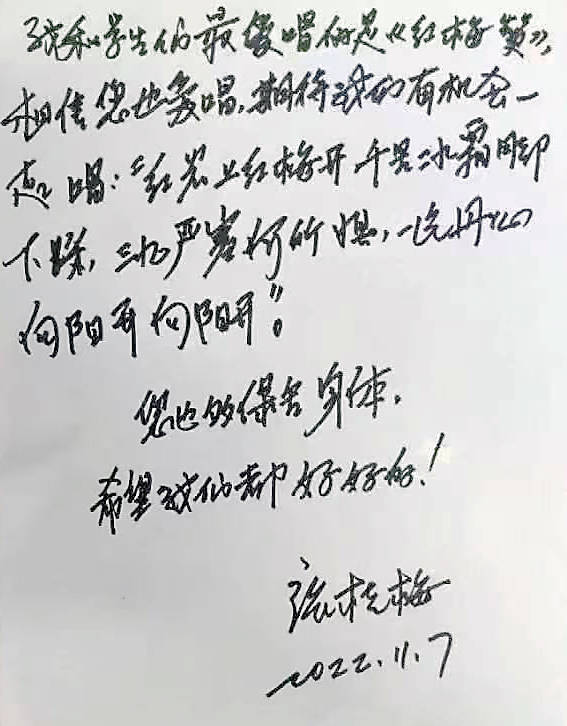 我和学生们最爱唱的是《红梅赞》，
相信您也爱唱，期待我们有机会一
起唱：“红岩上红梅开千里冰霜脚
下踩，三九严寒何所惧，一片丹心
向阳开向阳开”。
您也多保重身体，
希望我们都好好的！
张桂梅
2022.11.7